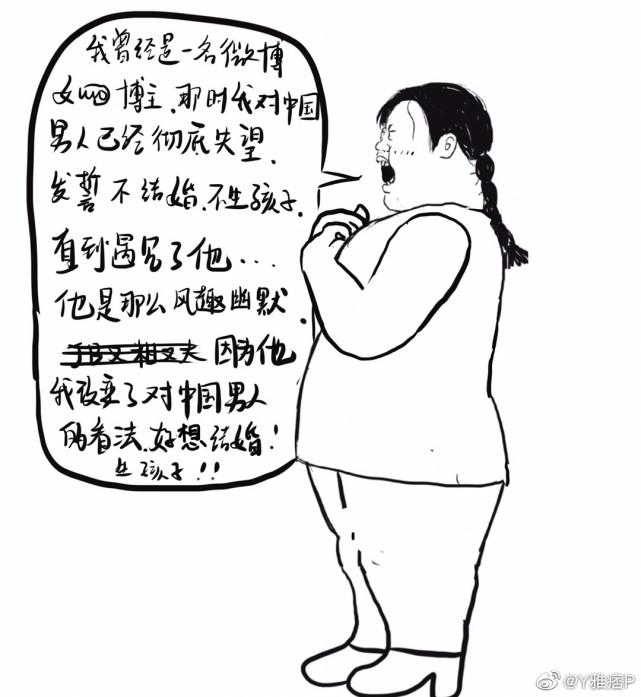 我曾经是一名微博
女 博主,那时我对中国
男人已经彻底失望.
发誓不结婚.不生孩子.
直到遇见了他...
他是那么风趣幽默.
因为他
我改变了对中国男人
的看法.好想结婚!
生孩子!!
@Y雅痞P